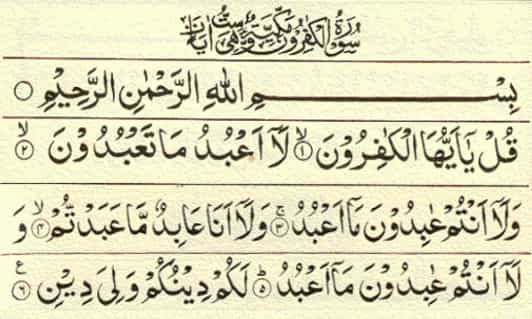 سُوْرَةُ الْكٰفِرُوْنَ مَكِّيَّةٌ وَّهِىَ سِتُّ اٰيَاتٍ
بِسْمِ اللهِ الرَّحْمٰنِ الرَّحِيْمِ ○
قُلْ يٰٓاَيُّهَا الْكٰفِرُوْنَ ۙ﴿١﴾ لَآ اَعْبُدُ مَا تَعْبُدُوْنَ ۙ﴿٢﴾
وَلَآ اَنْتُمْ عٰبِدُوْنَ مَآ اَعْبُدُ ۚ﴿٣﴾ وَلَآ اَنَا عَابِدٌ مَّا عَبَدْتُّمْ ۙ﴿٤﴾ وَ
لَآ اَنْتُمْ عٰبِدُوْنَ مَآ اَعْبُدُ ﴿٥﴾ لَكُمْ دِيْنُكُمْ وَلِىَ دِيْنِ ﴿٦﴾ ع